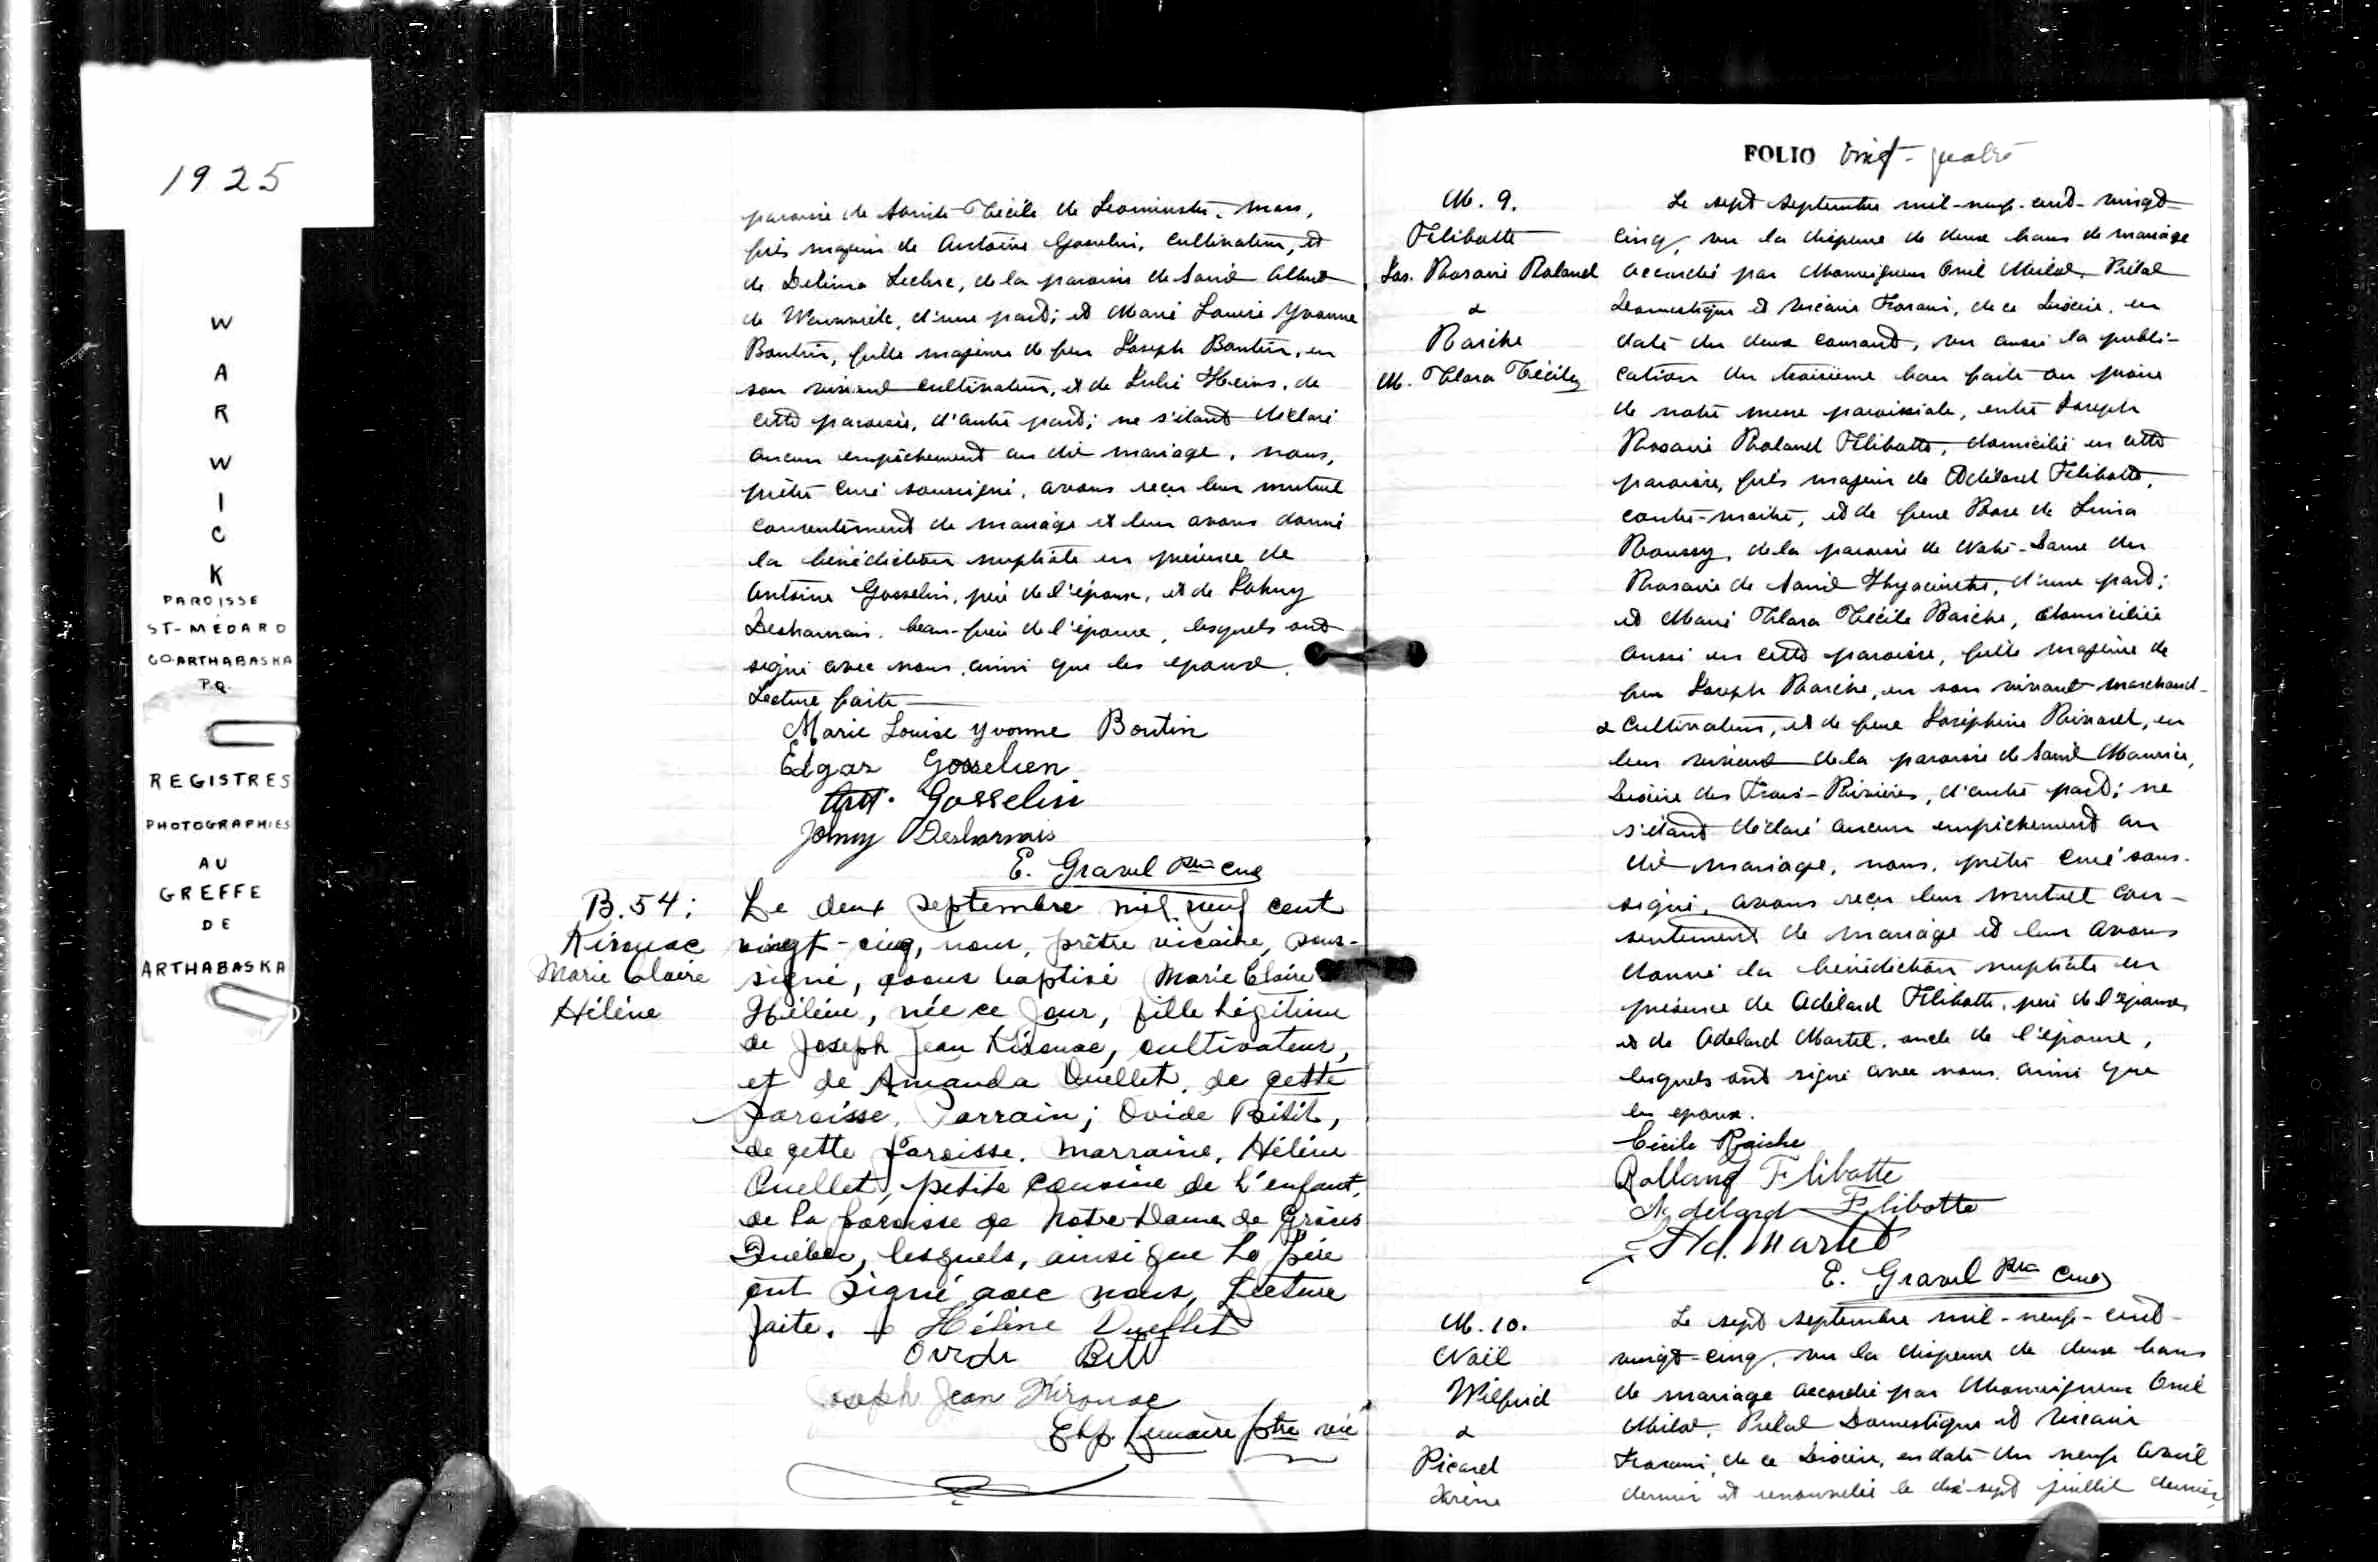 1925
W
A
R
W
I
C
K
PAROISSE
ST-MÉDARD
CO. ARTHABASKA
P.Q.
REGISTRES
PHOTOGRAPHIÉS
AU
GREFFE
DE
ARTHABASKA
paroisse de Sainte Cécile de Leominster, Mass,
fils majeur de Antoine Gosselin, cultivateur, et
de Delima Leclerc, de la paroisse de Saint Albert
de Warwick, d'une part; et Marie Louise Yvonne
Boutin, fille majeure de feu Joseph Boutin, en
son vivant cultivateur, et de Julie Heins, de
cette paroisse, d'autre part; ne s'étant déclaré
aucun empêchement au dit mariage, nous,
prêtre curé soussigné, avons reçu leur mutuel
consentement de mariage et leur avons donné
la bénédiction nuptiale en présence de
Antoine Gosselin, père de l'époux, et de Johnny
Desharnais, beau-frère de l'épouse, lesquels ont
signé avec nous, ainsi que les époux.
Lecture faite
Marie Louise Yvonne Boutin
Edgar Gosselien
Ant. Gosselin
Johny Desharnais
E. Gravel Ptre curé
B. 54:
Kirouac
Marie Claire
Hélène
Le deux septembre mil neuf cent
vingt-cinq, nous, prêtre vicaire, sous-
signé, avons baptisé Marie Claire
Hélène, née ce jour, fille légitime
de Joseph Jean Kirouac, cultivateur,
et de Amanda Ouellet, de cette
paroisse. Parrain; Ovide Petit,
de cette paroisse. Marraine, Hélène
Ouellet, petite cousine de l'enfant,
de la paroisse de Notre-Dame de Grâces
Québec, lesquels, ainsi que le père
ont signé avec nous, Lecture
faite. Hélène Ouellet
Ovide
Joseph Jean Kirouac
Lemaire ptre vic
FOLIO vingt-quatre
M. 9.
Flibotte
Jos. Rosaire Roland
&
Raiche
M. Clara Cécile
Le sept septembre mil-neuf-cent-vingt-
cinq, vu la dispense de deux bans de mariage
accordée par Monseigneur Onil Milot, Prélat
Domestique et Vicaire Forain, de ce Diocèse, en
date du deux courant, vu aussi la publi-
cation du troisième ban faite au prône
de notre messe paroissiale, entre Joseph
Rosaire Roland Flibotte, domicilié en cette
paroisse, fils majeur de Adélard Flibotte,
contre-maître, et de feue Rose de Lima
Roussy, de la paroisse de Notre-Dame du
Rosaire de Saint Hyacinthe, d'une part;
et Marie Clara Cécile Raiche, domiciliée
aussi en cette paroisse, fille majeure de
feu Joseph Raiche, en son vivant marchand
& cultivateur, et de feue Joséphine Rivard, en
leur vivant de la paroisse de Saint Maurice,
Diocèse des Trois-Rivières, d'autre part; ne
s'étant déclaré aucun empêchement au
dit mariage, nous, prêtre curé sous-
signé, avons reçu leur mutuel con-
sentement de mariage et leur avons
donné la bénédiction nuptiale en
présence de Adélard Flibotte, père de l'époux,
et de Adelard Martel, oncle de l'épouse,
lesquels ont signé avec nous, ainsi que
les époux.
Cécile Raiche
Rolland Flibotte
Adélard Flibotte
Ad. Martel
E. Gravel Ptre curé
M. 10.
Noël
Wilfrid
&
Picard
Irène
Le sept septembre mil-neuf-cent-
vingt-cinq, vu la dispense de deux bans
de mariage accordée par Monseigneur Onil
Milot, Prélat Domestique et Vicaire
Forain, de ce Diocèse, en date du neuf avril
dernier et renouvelée le dix-sept juillet dernier,